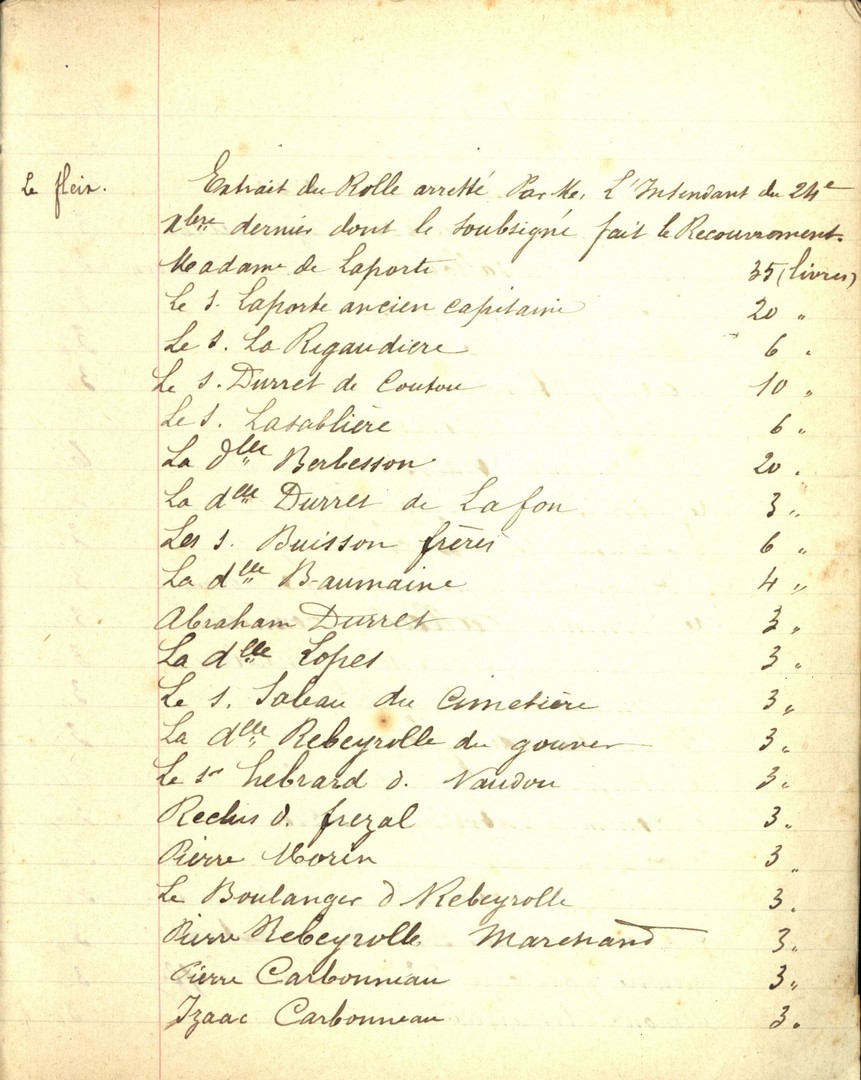 Le fleix.
Extrait du Rolle arretté Par Mr. L'Intendant du 24e
Xbre dernier dont le soubsigné fait le Recouvrement.
Madame de Laporte 35 (livres)
Le s. Laporte ancien capitaine 20 "
Le s. La Rigaudiere 6 "
Le s. Durret de Coutou 10 "
Le s. Lasablière 6 "
La dlle Berbesson 20 "
La dlle Durret de Lafon 3 "
Les s. Buisson frères 6 "
La dlle Baumaine 4 "
Abraham Durret 3 "
La dlle Lopes 3 "
Le s. Saleau du Cimetière 3 "
La dlle Rebeyrolle du gouver 3 "
Le sr hebrard d. Naudou 3 "
Reclus d. frezal 3 "
Pierre Morin 3 "
Le Boulanger d Rebeyrolle 3 "
Pierre Rebeyrolle Marchand 3 "
Pierre Carbonneau 3 "
Izaac Carbonneau 3 "